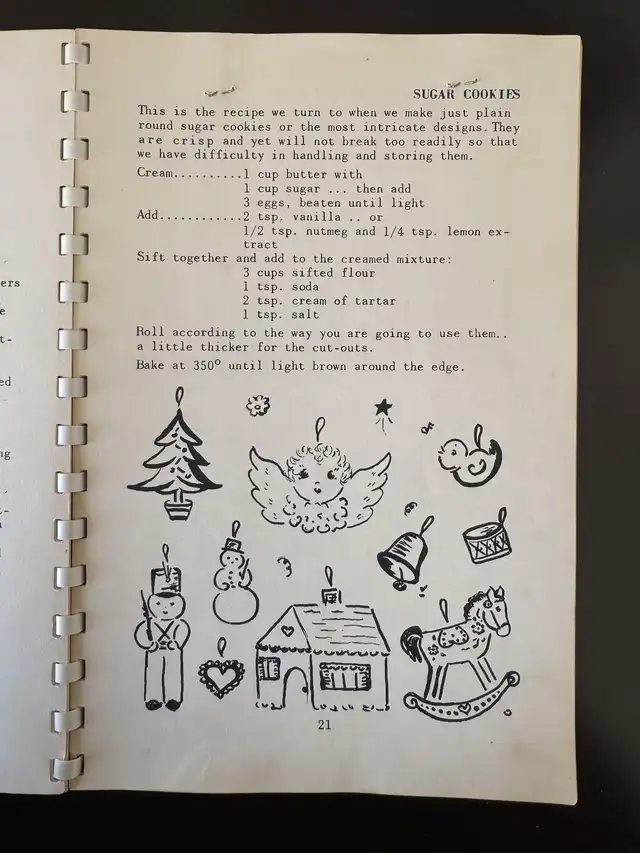 SUGAR COOKIES
This is the recipe we turn to when we make just plain
round sugar cookies or the most intricate designs. They
are crisp and yet will not break too readily so that
we have difficulty in handling and storing them.
Cream..........1 cup butter with
1 cup sugar ... then add
3 eggs, beaten until light
Add............2 tsp. vanilla .. or
1/2 tsp. nutmeg and 1/4 tsp. lemon ex-
tract
Sift together and add to the creamed mixture:
3 cups sifted flour
1 tsp. soda
2 tsp. cream of tartar
1 tsp. salt
Roll according to the way you are going to use them..
a little thicker for the cut-outs.
Bake at 350° until light brown around the edge.
21